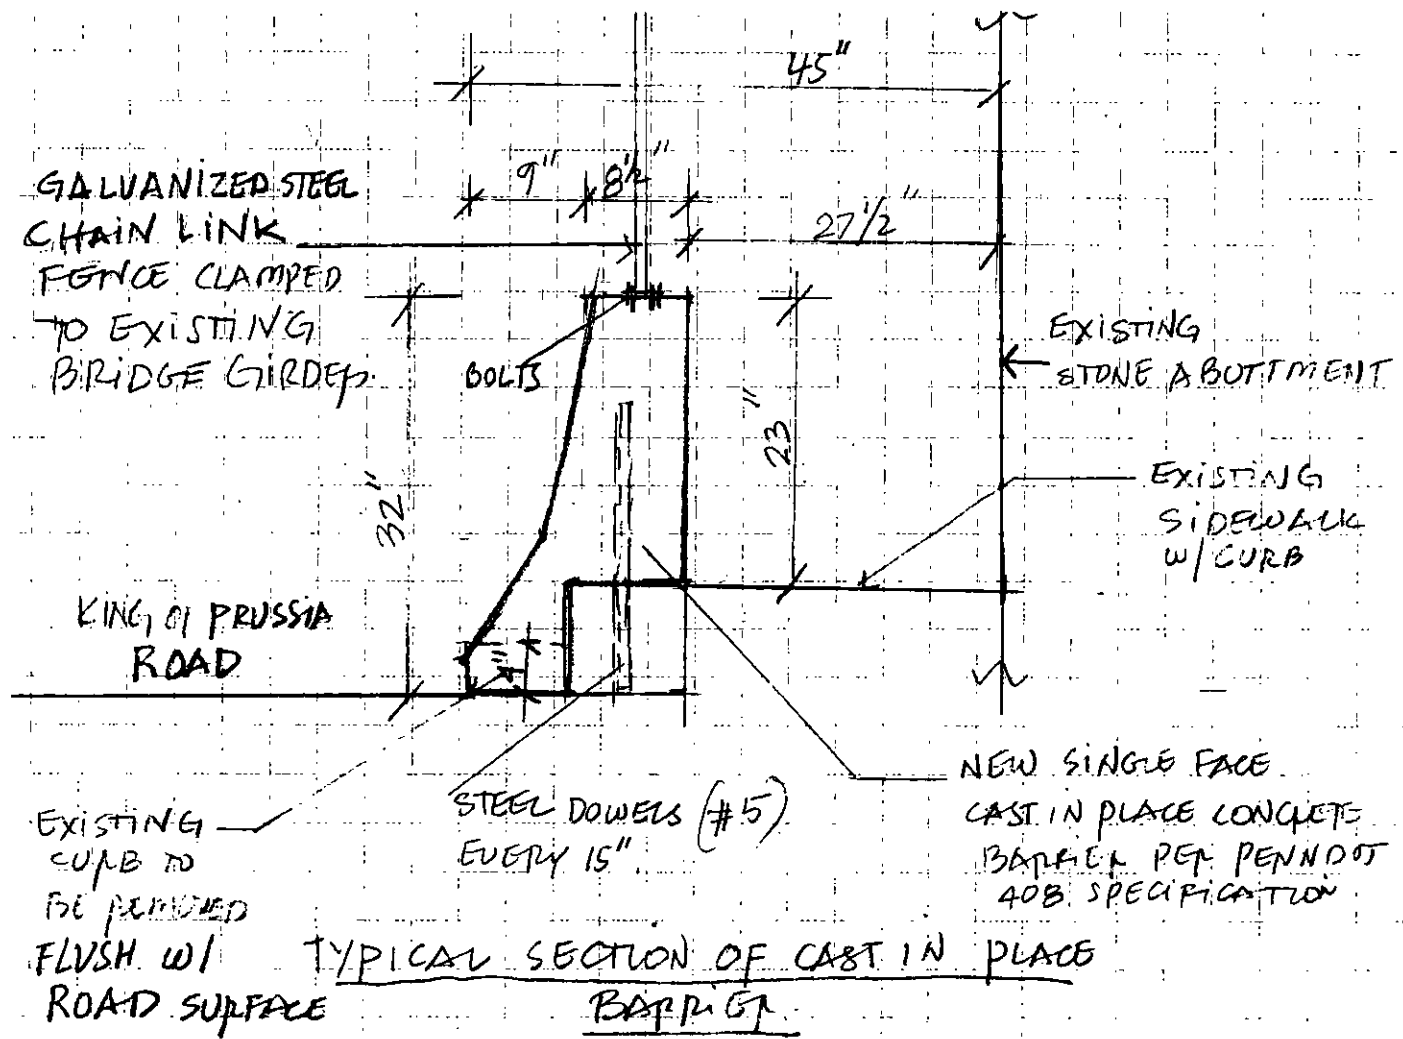 45"
9" 8½"
27½"
GALVANIZED STEEL
CHAIN LINK
FENCE CLAMPED
TO EXISTING
BRIDGE GIRDER.
BOLTS
EXISTING
STONE ABUTTMENT
32"
23"
EXISTING
SIDEWALK
W/ CURB
KING of PRUSSIA
ROAD
4"
EXISTING
CURB TO
BE REMOVED
FLUSH W/
ROAD SURFACE
STEEL DOWELS (#5)
EVERY 15".
NEW SINGLE FACE
CAST IN PLACE CONCRETE
BARRIER PER PENNDOT
408 SPECIFICATION
TYPICAL SECTION OF CAST IN PLACE
BARRIER.